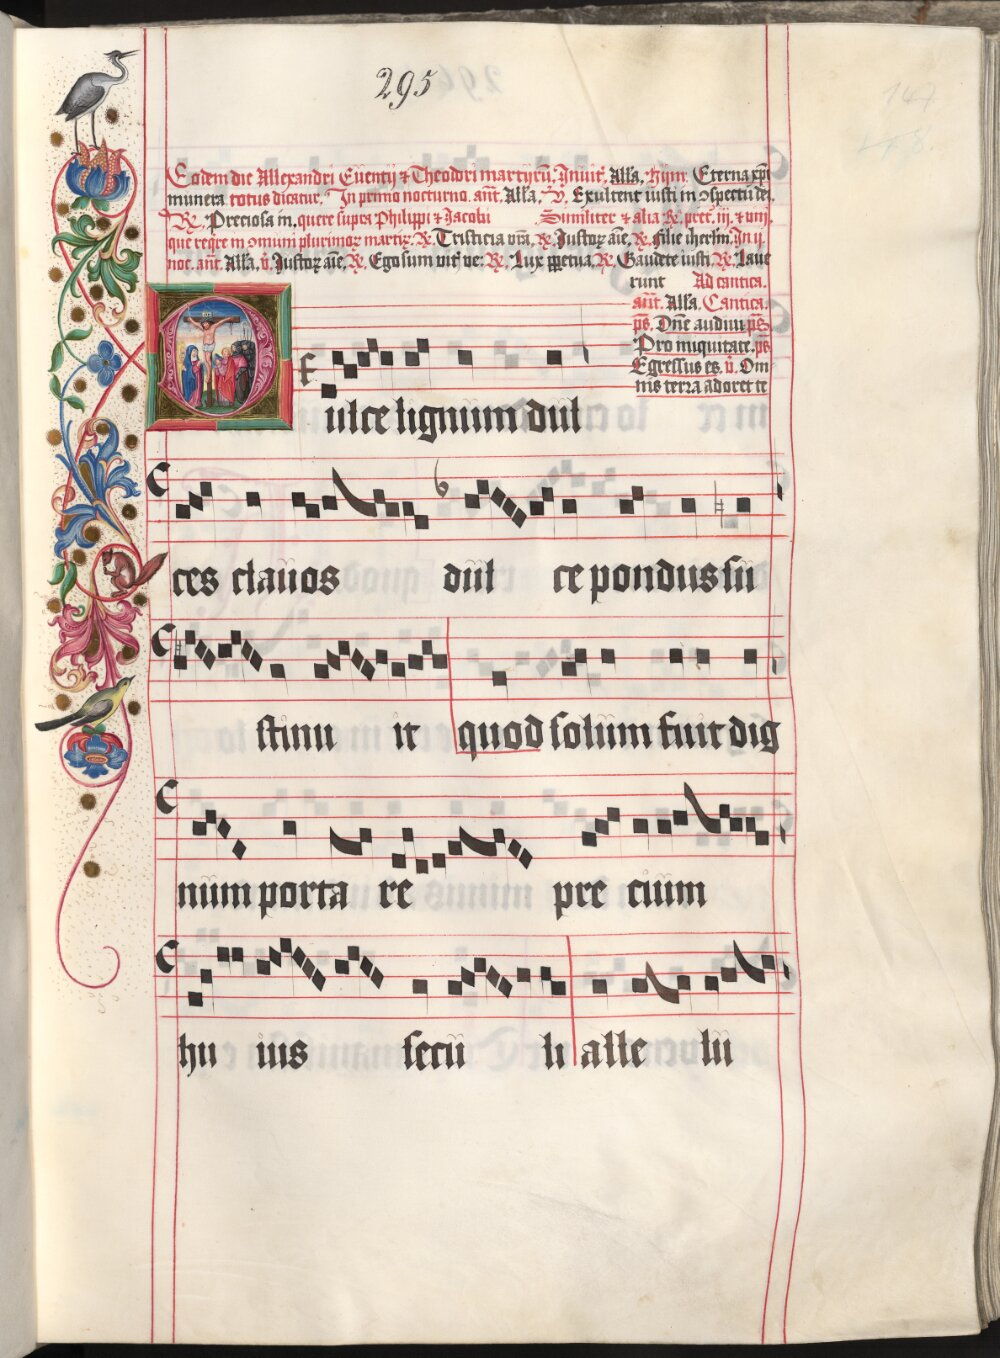 295
147
Eodem die Allexandri Euentij & Theodori martyrū. Inuit̄. Alła. hijm. Eterna xp̄i
munera totus dicatur. In primo nocturno. ant̄. Alła. v̄. Exultent iusti in ɔspectu dei.
R̄. Preciosa in. quere supra Philippi & Jacobi Similiter & alia R̄. pret̄. iij. & viij.
que reqr̄e in ɔmum plurimoꝝ martiꝝ. R̄. Tristicia vr̄a. R̄. Justoꝝ aīe. R̄. filie ihrłm. In ij.
noc. ant̄. Alła. v̄. Justoꝝ aīe. R̄. Ego sum vit̄ ve: R̄. Lux ꝑpetua. R̄. Gaudete iusti. R̄. Laue
runt Ad cantica.
ant̄. Alła. Cantica.
ps̄. Dn̄e audiui ps̄
Pro iniquitate. ps̄
Egressus es. v̄. Om
nis terra adoret te
Dulce lignum dul
ces clauos dul ce pondus su
stinu it quod solum fuit dig
num porta re pre cium
hu ius secu li alle lu